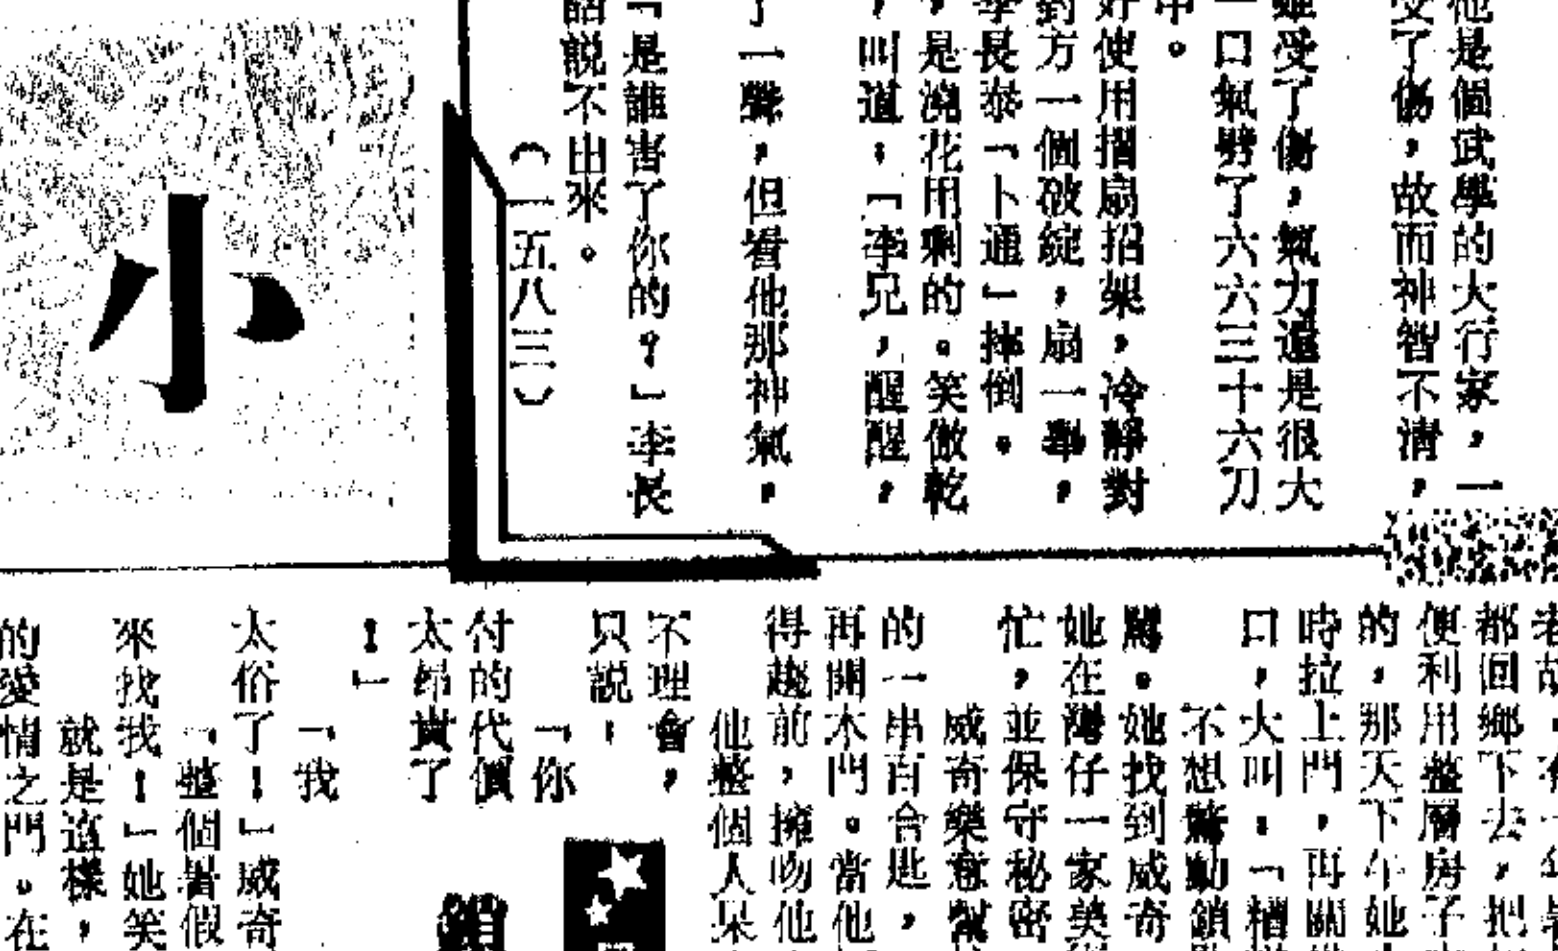 他是個武學的大行家，一
受了傷，故而神智不清，
雖受了傷，氣力還是很大
一口氣劈了六六三十六刀
中。
好使用摺扇招架，冷靜對
對方一個破綻，扇一舉，
李長泰「卜通」摔倒。
，是澆花用剩的。笑傲乾
，叫道：「李兄，醒醒，
了一聲，但看他那神氣，
「是誰害了你的？」李長
話説不出來。
（一五八三）
小
都回鄉下去，把
便利用整層房子
的，那天下午她
時拉上門，再關
口，大叫：「糟
不想驚動鎖
罵。她找到威奇
她在灣仔一家美
忙，並保守秘密
威奇樂意幫
的一串百合匙，
再開木門。當他
得趨前，擁吻他
他整個人呆
不理會，
只説：
「你
付的代價
太昂貴了
！」
「我
太俗了！」威奇
「整個暑假
來找我！」她笑
就是這樣，
的愛情之門。在
鎖